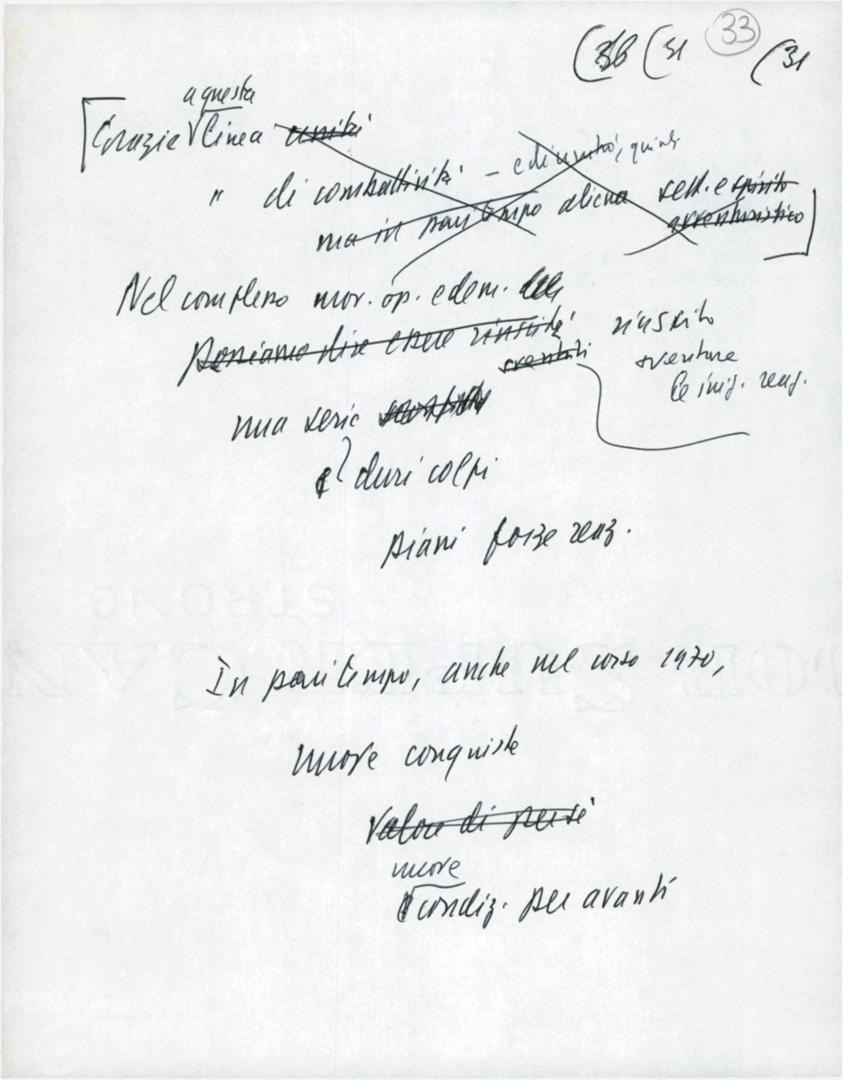 (38 (31 33 (31
a questa
Grazie linea unità
" di combattività - ed unità, quindi
ma in pari tempo aliena sett. e spirito
avventuristico
Nel complesso mov. op. e dem.
possiamo dire essere riuscito riuscito
sventare
le iniz. reaz.
una serie
duri colpi
piani forze reaz.
In pari tempo, anche nel corso 1970,
nuove conquiste
Valore di per sé
nuove
condiz. per avanti